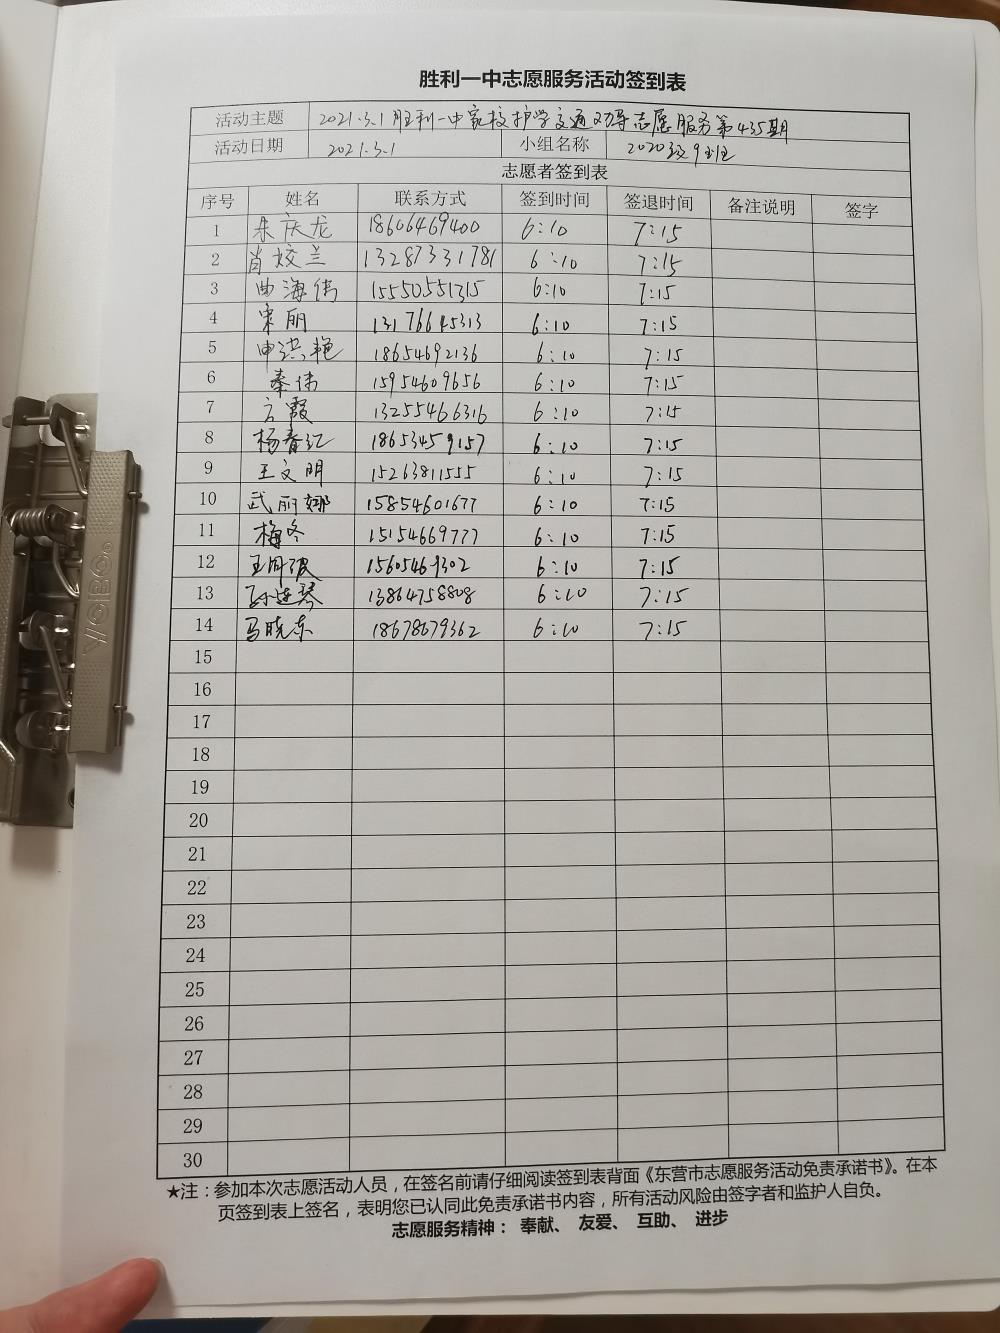 胜利一中志愿服务活动签到表
活动主题 2021.3.1胜利一中家校护学交通劝导志愿服务第435期
活动日期 2021.3.1 小组名称 2020级9班
志愿者签到表
序号 姓名 联系方式 签到时间 签退时间 备注说明 签字
1 朱庆龙 18606469400 6:10 7:15
2 肖姣兰 13287331781 6:10 7:15
3 曲海伟 15550551315 6:10 7:15
4 宋丽 13176645313 6:10 7:15
5 申洪艳 18654692136 6:10 7:15
6 秦伟 15954609656 6:10 7:15
7 方霞 13255466316 6:10 7:15
8 杨春红 18653459157 6:10 7:15
9 王文明 15263811555 6:10 7:15
10 武丽娜 15854601677 6:10 7:15
11 梅冬 15154669777 6:10 7:15
12 15605469302 6:10 7:15
13 13864758808 6:10 7:15
14 马晓东 18678679362 6:10 7:15
15
16
17
18
19
20
21
22
23
24
25
26
27
28
29
30
★注：参加本次志愿活动人员，在签名前请仔细阅读签到表背面《东营市志愿服务活动免责承诺书》。在本
页签到表上签名，表明您已认同此免责承诺书内容，所有活动风险由签字者和监护人自负。
志愿服务精神： 奉献、 友爱、 互助、 进步
VICBO